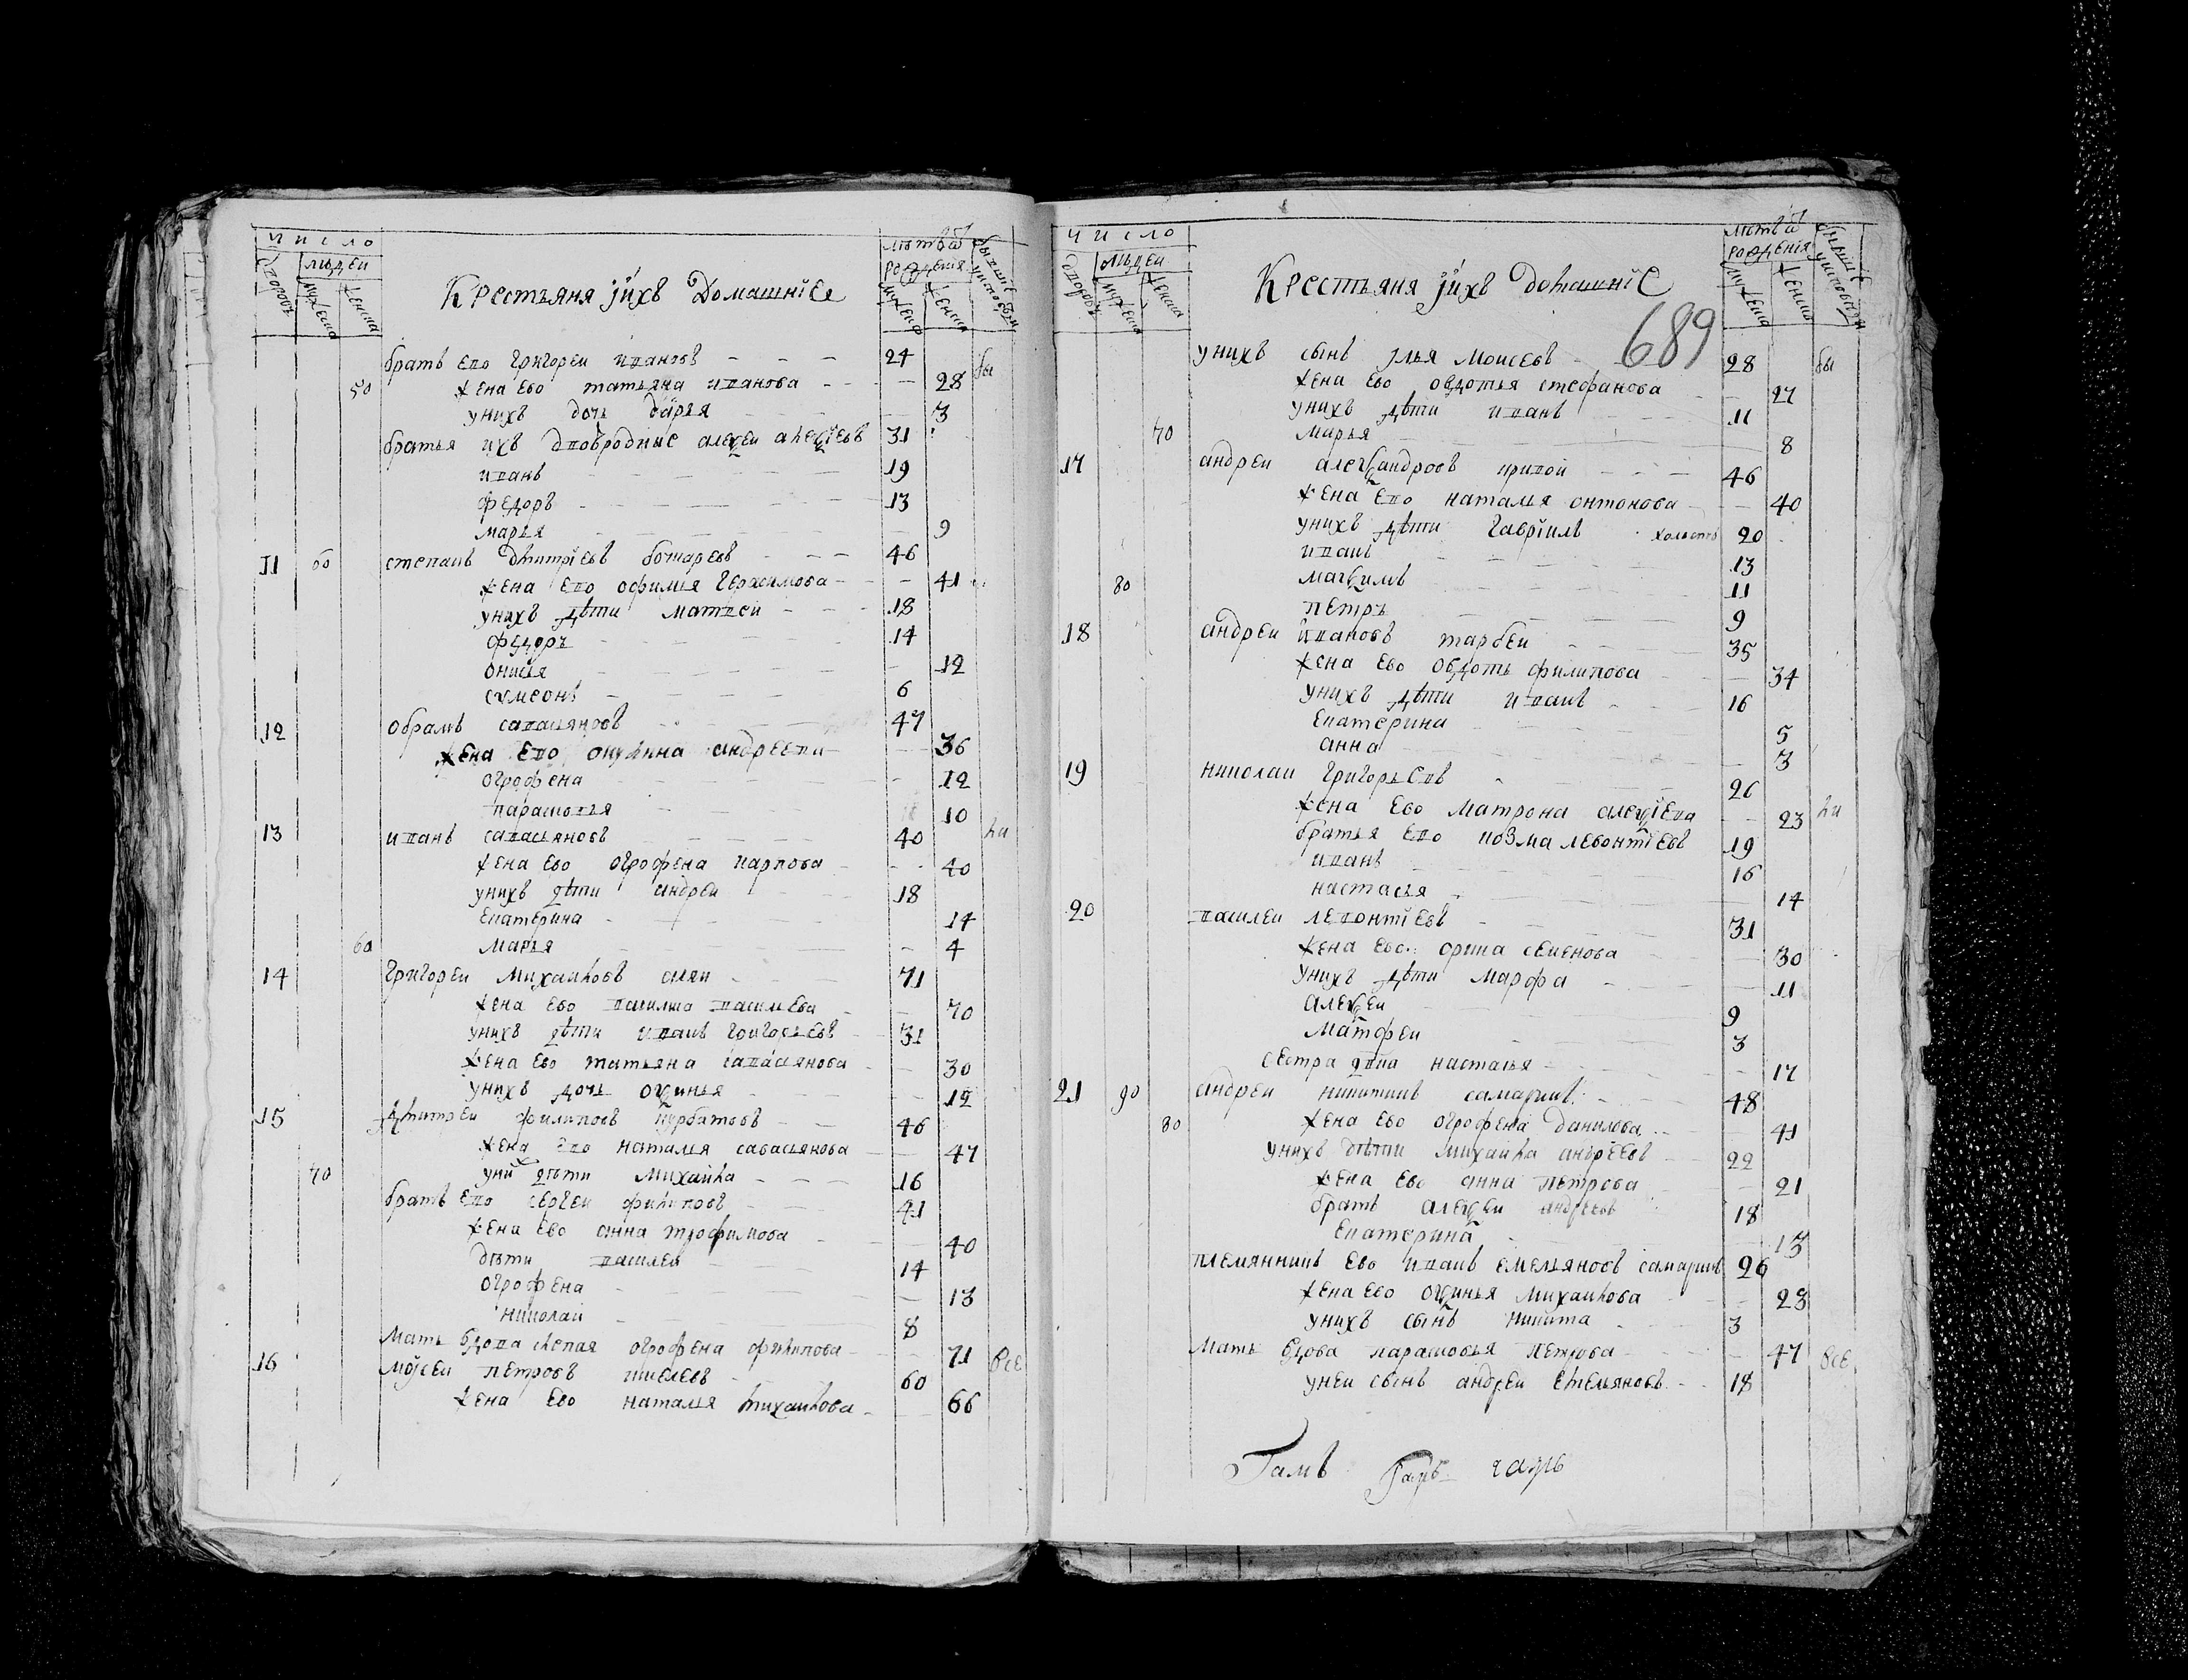 число
людеи
Крестьяня јихъ Домашнїе
лѣтъ ѿ рождения
братъ ево григореи ивановъ 24 бы
50 жена ево татьяна иванова 28
унихъ дочь дарья 3
братья ихъ двовродные алеѯеи алеѯїевъ 31
иванъ 19
федоръ 13
марья 9
11 60 степанъ дмитрїевъ 46
жена ево офимья герасимова 41
унихъ дѣти матвеи 18
федоръ 14
онисья 12
сѵмеонъ 6
12 обрамъ савасьяновъ 47
жена ево окулина андреева 36
огрофена 12
парасковья 10
13 иванъ савасьяновъ 40 ли
жена ево огрофена карпова 40
унихъ дѣти андреи 18
екатерина 14
60 марья 4
14 григореи михаиловъ 71
жена ево василиса васильева 70
унихъ дѣти иванъ григорьевъ 31
жена ево татьяна савасьянова 30
унихъ дочь оѯинья 12
15 дмитреи филиповъ курбатовъ 46
жена ево наталья савасьянова 47
70 уни дѣти михаила 16
братъ ево сергеи филиповъ 41
жена ево анна трофимова 40
дѣти василеи 14
огрофена 13
николаи 8
мать вдова слепая огрофена филипова 71 все
16 мойсеи петровъ 60
жена ево наталья михаилова 66
число
людеи
Крестьяня јихъ домашнїе
лѣтъ ѿ рождения
689
унихъ сынъ илья моисеевъ 28 бы
жена ево овдотья стефанова 27
унихъ дѣти иванъ 11
70 марья 8
17 андреи алеѯандровъ кривои 46
жена ево наталья онтонова 40
унихъ дѣти гаврїилъ холостъ 20
иванъ 13
80 маѯимъ 11
петръ 9
18 андреи ивановъ 35
жена ево овдоть филипова 34
унихъ дѣти иванъ 16
екатерина 5
анна 3
19 николаи григорьевъ 26
жена ево матрона алеѯїева 23 ли
братья ево козма левонтїевъ 19
иванъ 16
настасья 14
20 василеи левонтїевъ 31
жена ево орина семенова 30
унихъ дѣти марфа 11
алеѯеи 9
матфеи 3
сестра двка настасья 17
21 90 андреи никитинъ самаринъ 48
80 жена ево огрофена данилова 41
унихъ дѣти михаила андрѣевъ 22
жена ево анна петрова 21
братъ алеѯеи андреевъ 18
екатерина 13
племянникъ ево иванъ емельяновъ самаринъ 26
жена ево оѯинья михаилова 23
унихъ сынъ никита 3
мать вдова парасковья петрова 47 все
унеи сынъ андреи емельяновъ 18